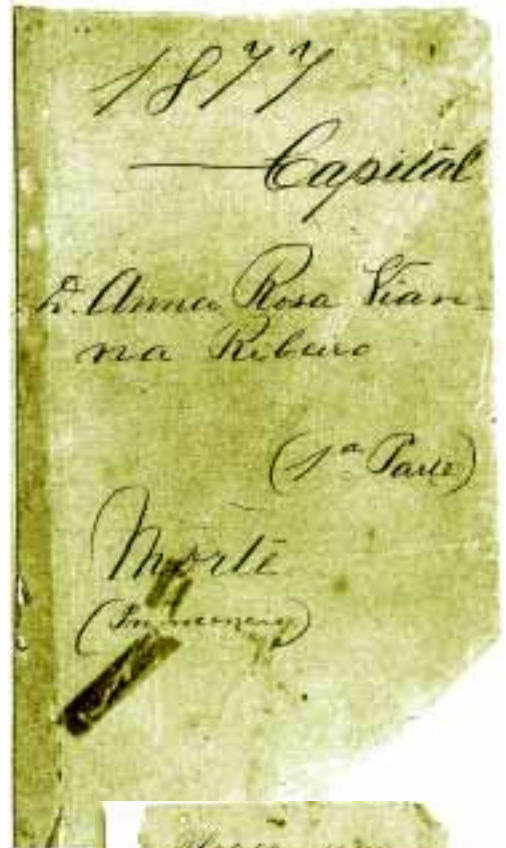 1877
Capital
D. Anna Rosa Vian-
na Ribeiro
(1ª Parte)
Morte